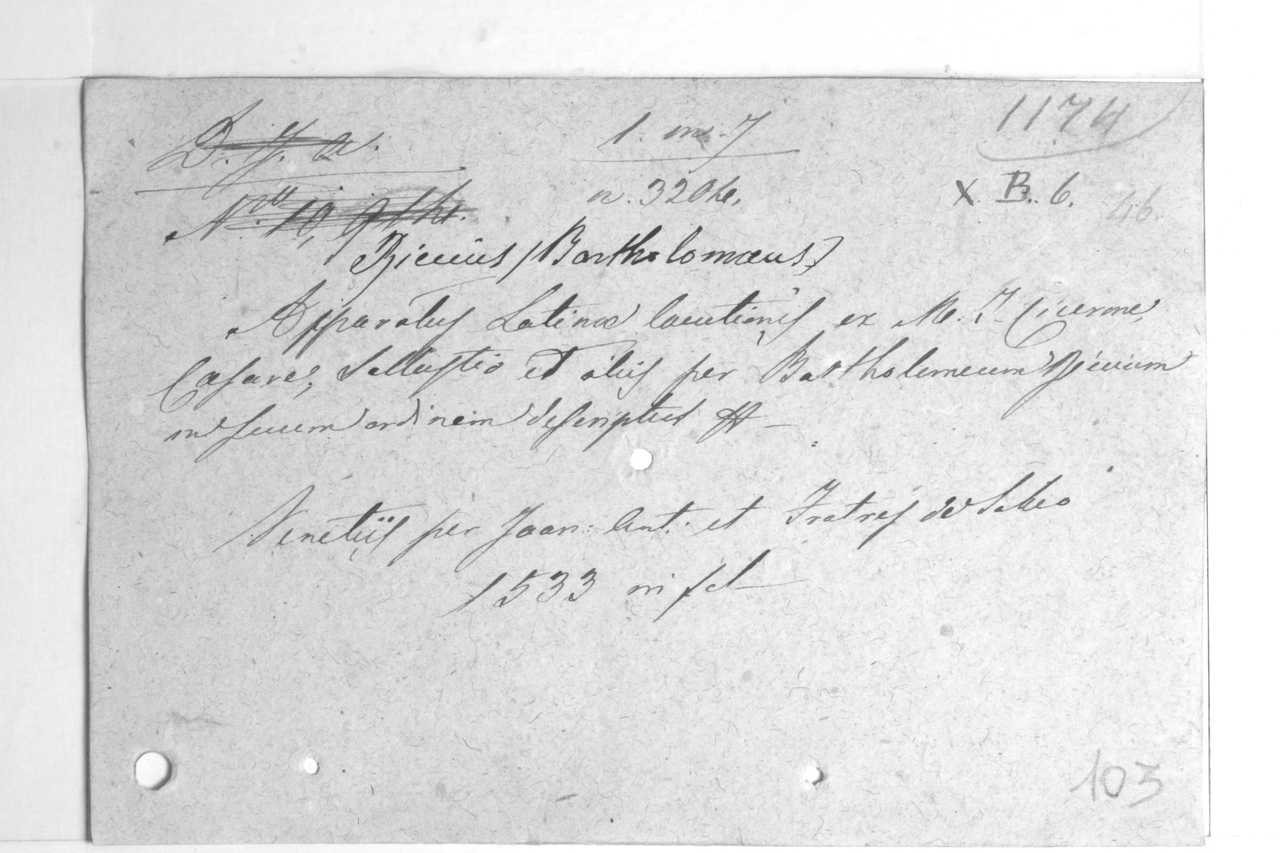 D. g. a. 1. m. 7 1174
Nro 10, X. B. 6. 46.
n. 3204.
Riccius (Bartholomæus)
Apparatus Latinæ locutionis ex M. T. Cicerone,
Cæsare, Sallustio et aliis per Bartholomeum Riccium
in suum ordinem descriptus
Venetiis per Joan: Ant: et Fratres de Sabio
1533 in fol
103